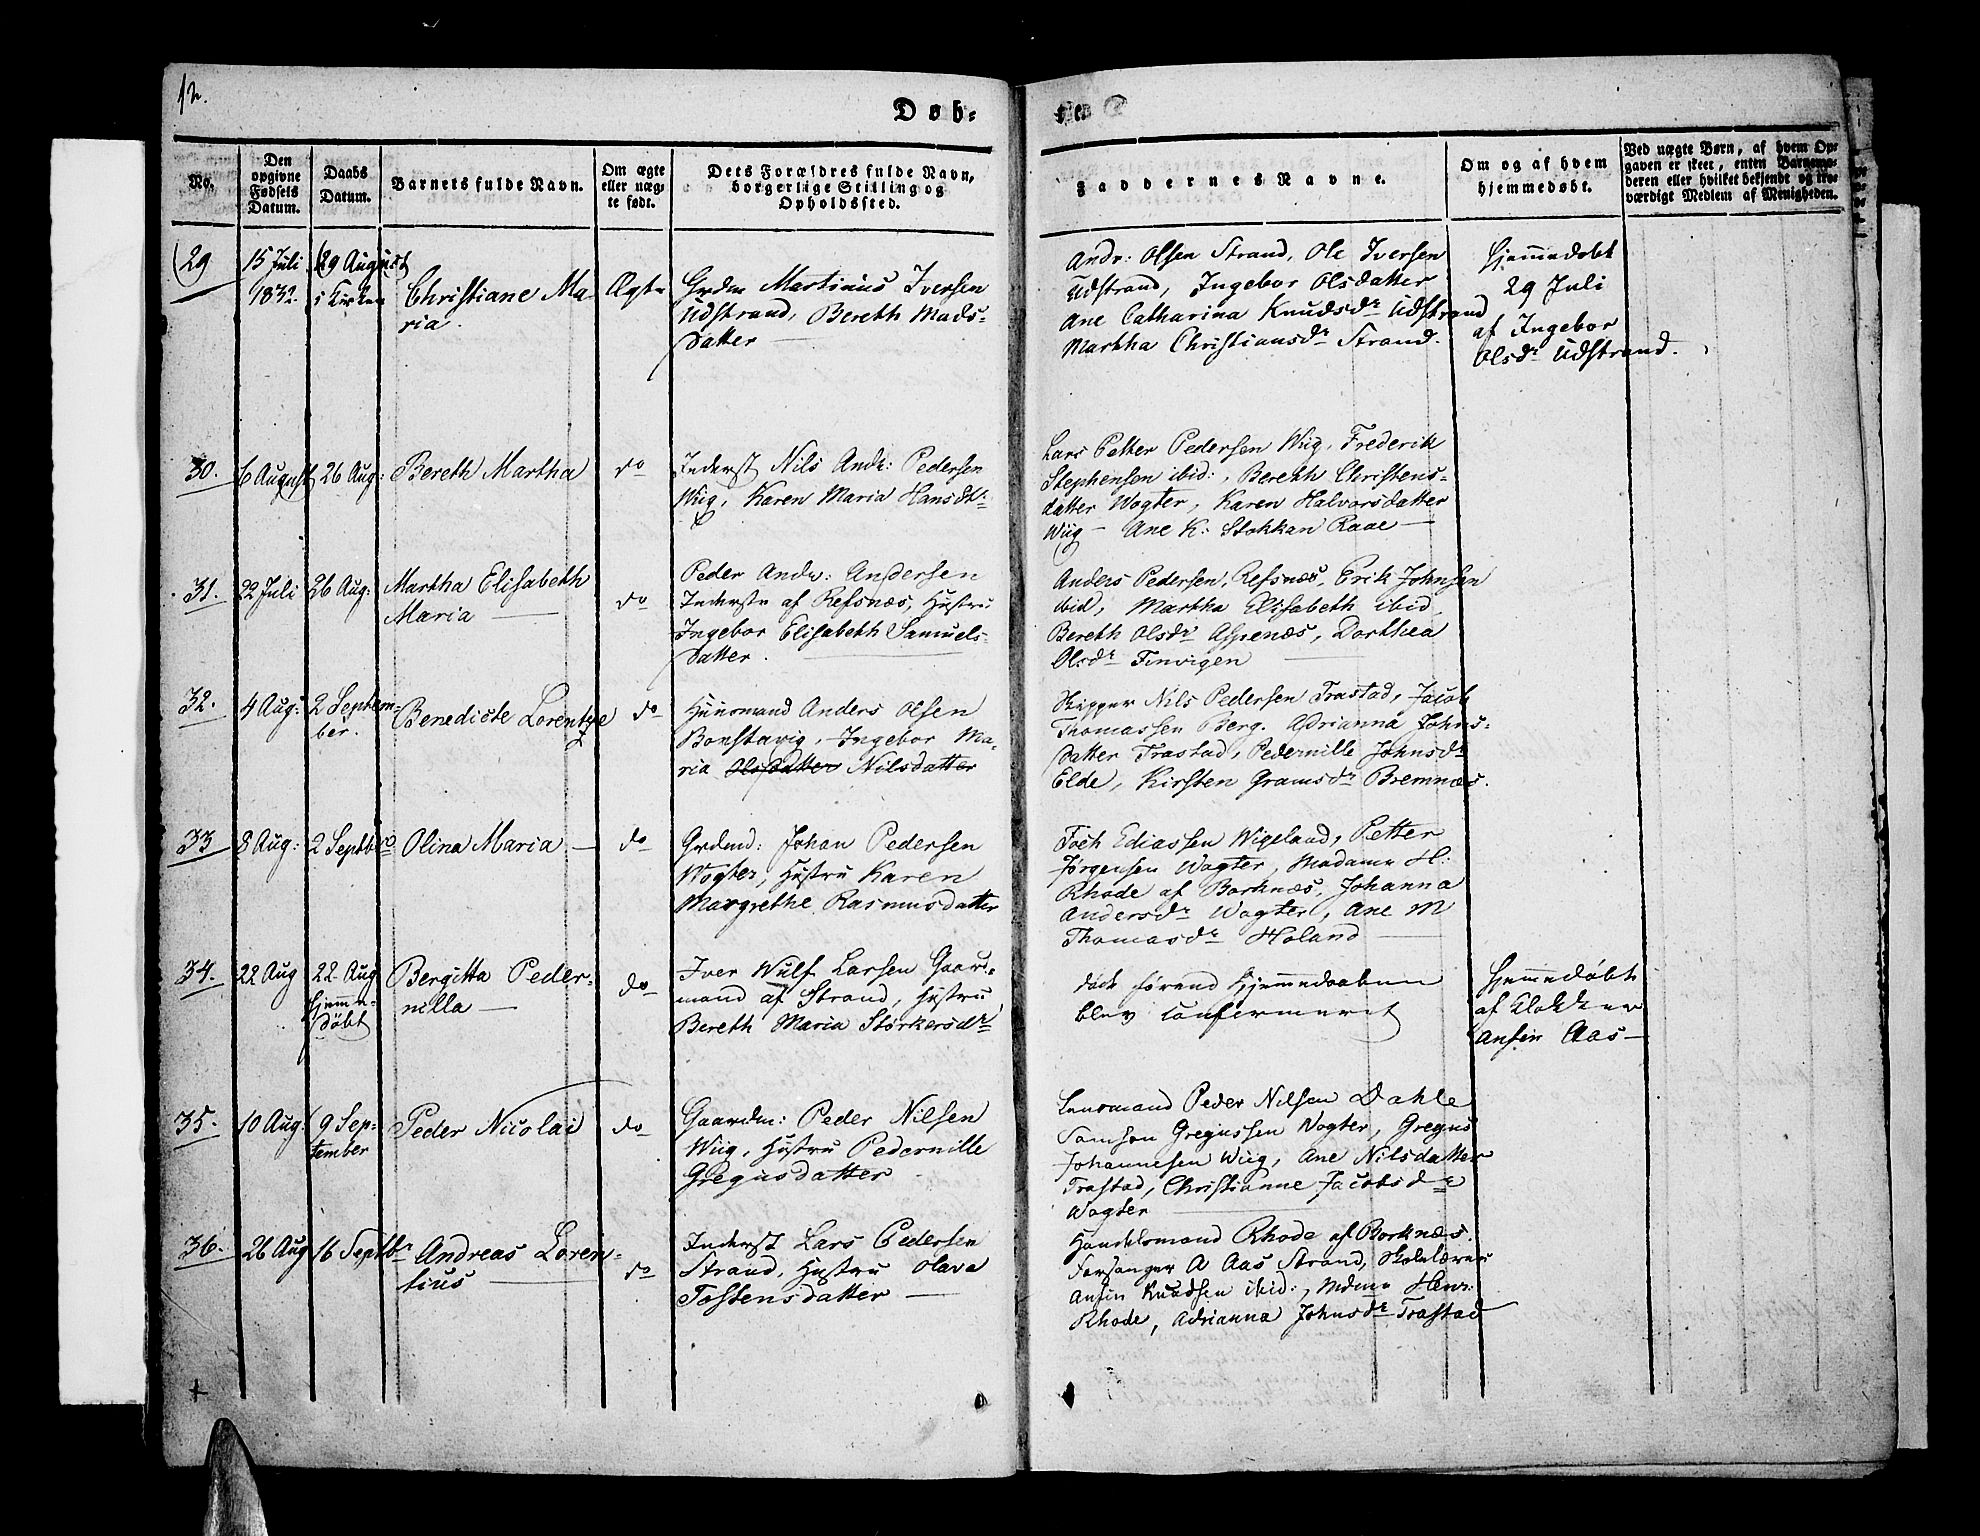 12.
Døb-
No.
Den
opgivne
Fødsels
Datum.
Daabs
Datum.
Barnets fulde Navn.
Om ægte
eller uæg-
te født.
Dets Forældres fulde Navn,
borgerlige Stilling og
Opholdssted.
Faddernes Navne.
Om og af hvem
hjemmedøbt.
Ved uægte Børn, af hvem Op-
gaven er skeet, enten Barnemo-
deren eller hvilket bekjendt og tro-
værdigt Medlem af Menigheden.
29
15 Juli
1832.
29 August
i Kirken
Christiane Ma-
ria.
Ægte
Grdm Martinus Iversen
Udstrand, Bereth Mads-
datter
Andr: Olsen Strand, Ole Iversen
Udstrand, Ingebor Olsdatter
Ane Catharina Knudsdr Udstrand
Martha Christiansdr Strand.
Hjemmedøbt
29 Juli
af Ingebor
Olsdr Udstrand.
30.
6 August
26 Aug:
Bereth Martha
do
Inderst Nils Andr: Pedersen
Wiig, Karen Maria Hansdtr
Lars Petter Pedersen Wiig, Frederik
Stephensen ibid:, Bereth Christens-
datter Wogter, Karen Halvorsdatter
Wiig - Ane K: Stokkan Raae
31.
22 Juli
26 Aug:
Martha Elisabeth
Maria
do
Peder Andr: Andersen
Inderste af Refsnæs, Hustru
Ingebor Elisabeth Samuels-
datter.
Anders Pedersen, Refsnæs, Erik Johnsen
ibid, Martha Elisabeth ibid,
Bereth Olsdr Aspenæs, Dorthea
Olsdr Finvigen
32.
4 Aug:
2 Septem-
ber.
Benedicte Lorentze
do
Huusmand Anders Olsen
Bonstavig, Ingebor Ma-
ria Olsdatter Nilsdatter
Skipper Nils Pedersen Trastad, Jacob
Thomassen Berg. Adrianna Johns-
datter Trastad, Pedernille Johnsdr
Elde, Kirsten Gramsdr Bremnæs.
33
8 Aug:
2 Septbr
Olina Maria
do
Grdmd: Johan Pedersen
Wogter, Hustru Karen
Margrethe Rasmusdatter
Foch Ediassen Wigeland, Petter
Jørgensen Wogter, Madame H:
Rhode af Borknæs, Johanna
Andersdr Wogter, Ane M
Thomasdr Holand
34.
22 Aug
22 Aug
Hjemme-
døbt
Bergitta Peder-
nilla
do
Iver Wulf Larsen Gaard-
mand af Strand, Hustru
Bereth Maria Størkersdr
døde førend Hjemmedaaben
blev confirmeret
Hjemmedøbt
af Klokker
Ansin Aas
35.
10 Aug.
9 Sep-
tember
Peder Nicolai
do
Gaardm: Peder Nilsen
Wiig, Hustru Pedernille
Gregusdatter
Lensmand Peder Nilsen Dahle
Samson Gregussen Wogter, Gregus
Johannesen Wiig, Ane Nilsdatter
Trastad, Christianne Jacobsdr
Wogter
36.
26 Aug
16 Septbr
Andreas Loren-
tius
do
Inderst Lars Pedersen
Strand, Hustru Olava
Tostensdatter
Handelsmand Rhode af Borknæs.
Forsanger A Aas Strand, Skolelærer
Ansin Knudsen ibid:, Mdme Henr:
Rhode, Adrianna Johnsdr Trastad